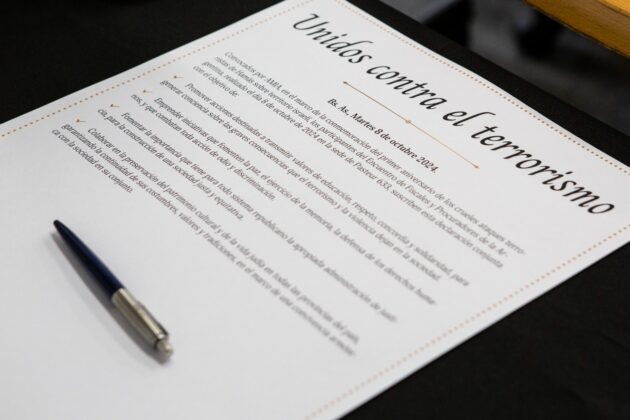 Unidos contra el terrorismo
Bs. As., Martes 8 de octubre 2024.
Convocados por AMIA, en el marco de la conmemoración del primer aniversario de los crueles ataques terro-
ristas de Hamás sobre territorio israelí, los participantes del Encuentro de Fiscales y Procuradores de la Ar-
gentina, realizado el día 8 de octubre de 2024 en la sede de Pasteur 633, suscriben esta declaración conjunta
con el objetivo de:
Promover acciones destinadas a transmitir valores de educación, respeto, concordia y solidaridad, para
generar conciencia sobre las graves consecuencias que el terrorismo y la violencia dejan en la sociedad.
Emprender iniciativas que fomenten la paz, el ejercicio de la memoria, la defensa de los derechos huma-
nos, y que combatan toda acción de odio y discriminación.
Fomentar la importancia que tiene para todo sistema republicano la apropiada administración de justi-
cia, para la construcción de una sociedad justa y equitativa.
Colaborar en la preservación del patrimonio cultural y de la vida judía en todas las provincias del país,
garantizando la continuidad de sus costumbres, valores y tradiciones, en el marco de una convivencia armóni-
ca con la sociedad en su conjunto.